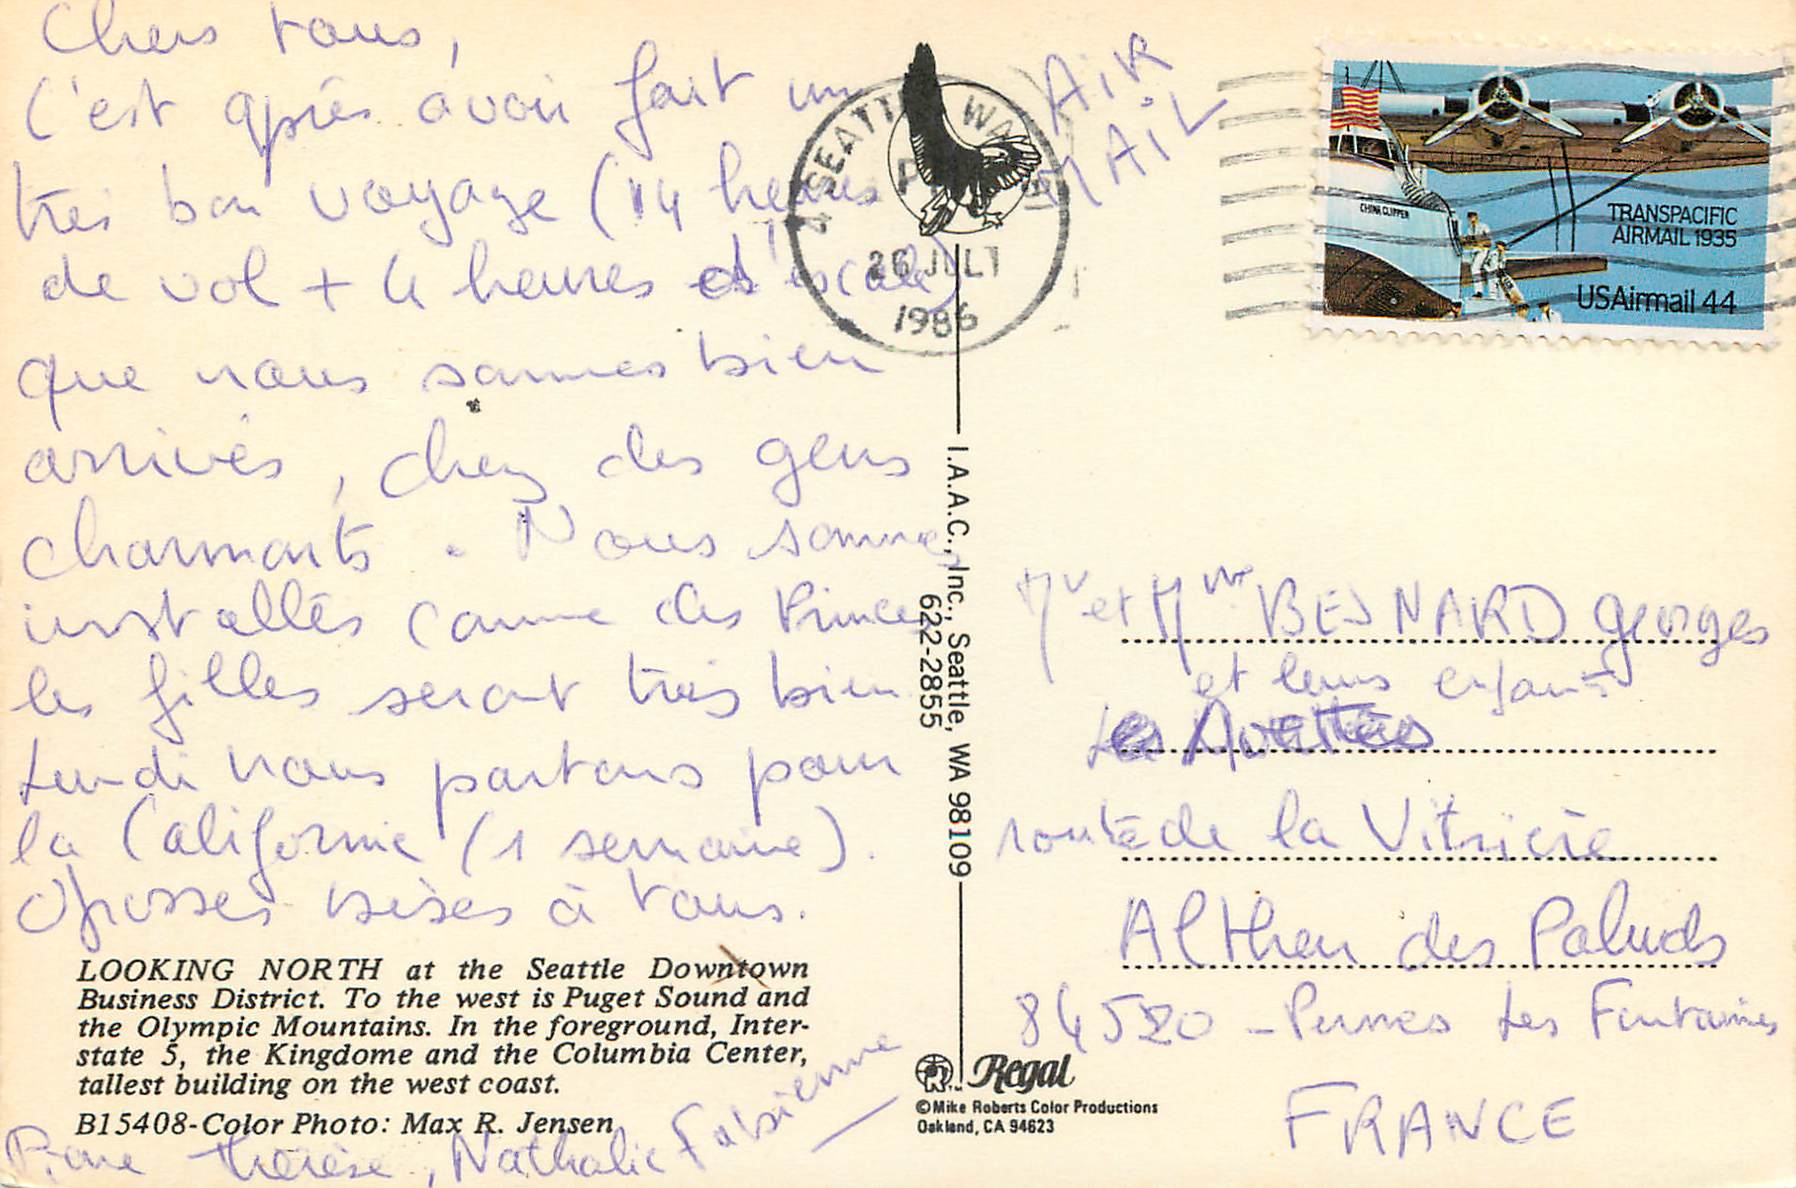 Chers tous,
C'est après avoir fait un
très bon voyage (14 heures
de vol + 4 heures d'escale)
que nous sommes bien
arrivés, chez des gens
charmants. Nous sommes
installés comme des Princes
les filles seront très bien
Lundi nous partons pour
la Californie (1 semaine).
Grosses bises à tous.
LOOKING NORTH at the Seattle Downtown
Business District. To the west is Puget Sound and
the Olympic Mountains. In the foreground, Inter-
state 5, the Kingdome and the Columbia Center,
tallest building on the west coast.
B15408-Color Photo: Max R. Jensen
Pierre Thérèse, Nathalie Fabienne
SEATTLE WA
26 JUL
1986
AIR
MAIL
CHINA CLIPPER
TRANSPACIFIC
AIRMAIL 1935
USAirmail 44
I.A.A.C., Inc., Seattle, WA 98109
622-2855
Mr et Mme BESNARD Georges
et leurs enfants
Les
route de la Vitrière
Althen des Paluds
84520 - Pernes Les Fontaines
FRANCE
Regal
©Mike Roberts Color Productions
Oakland, CA 94623